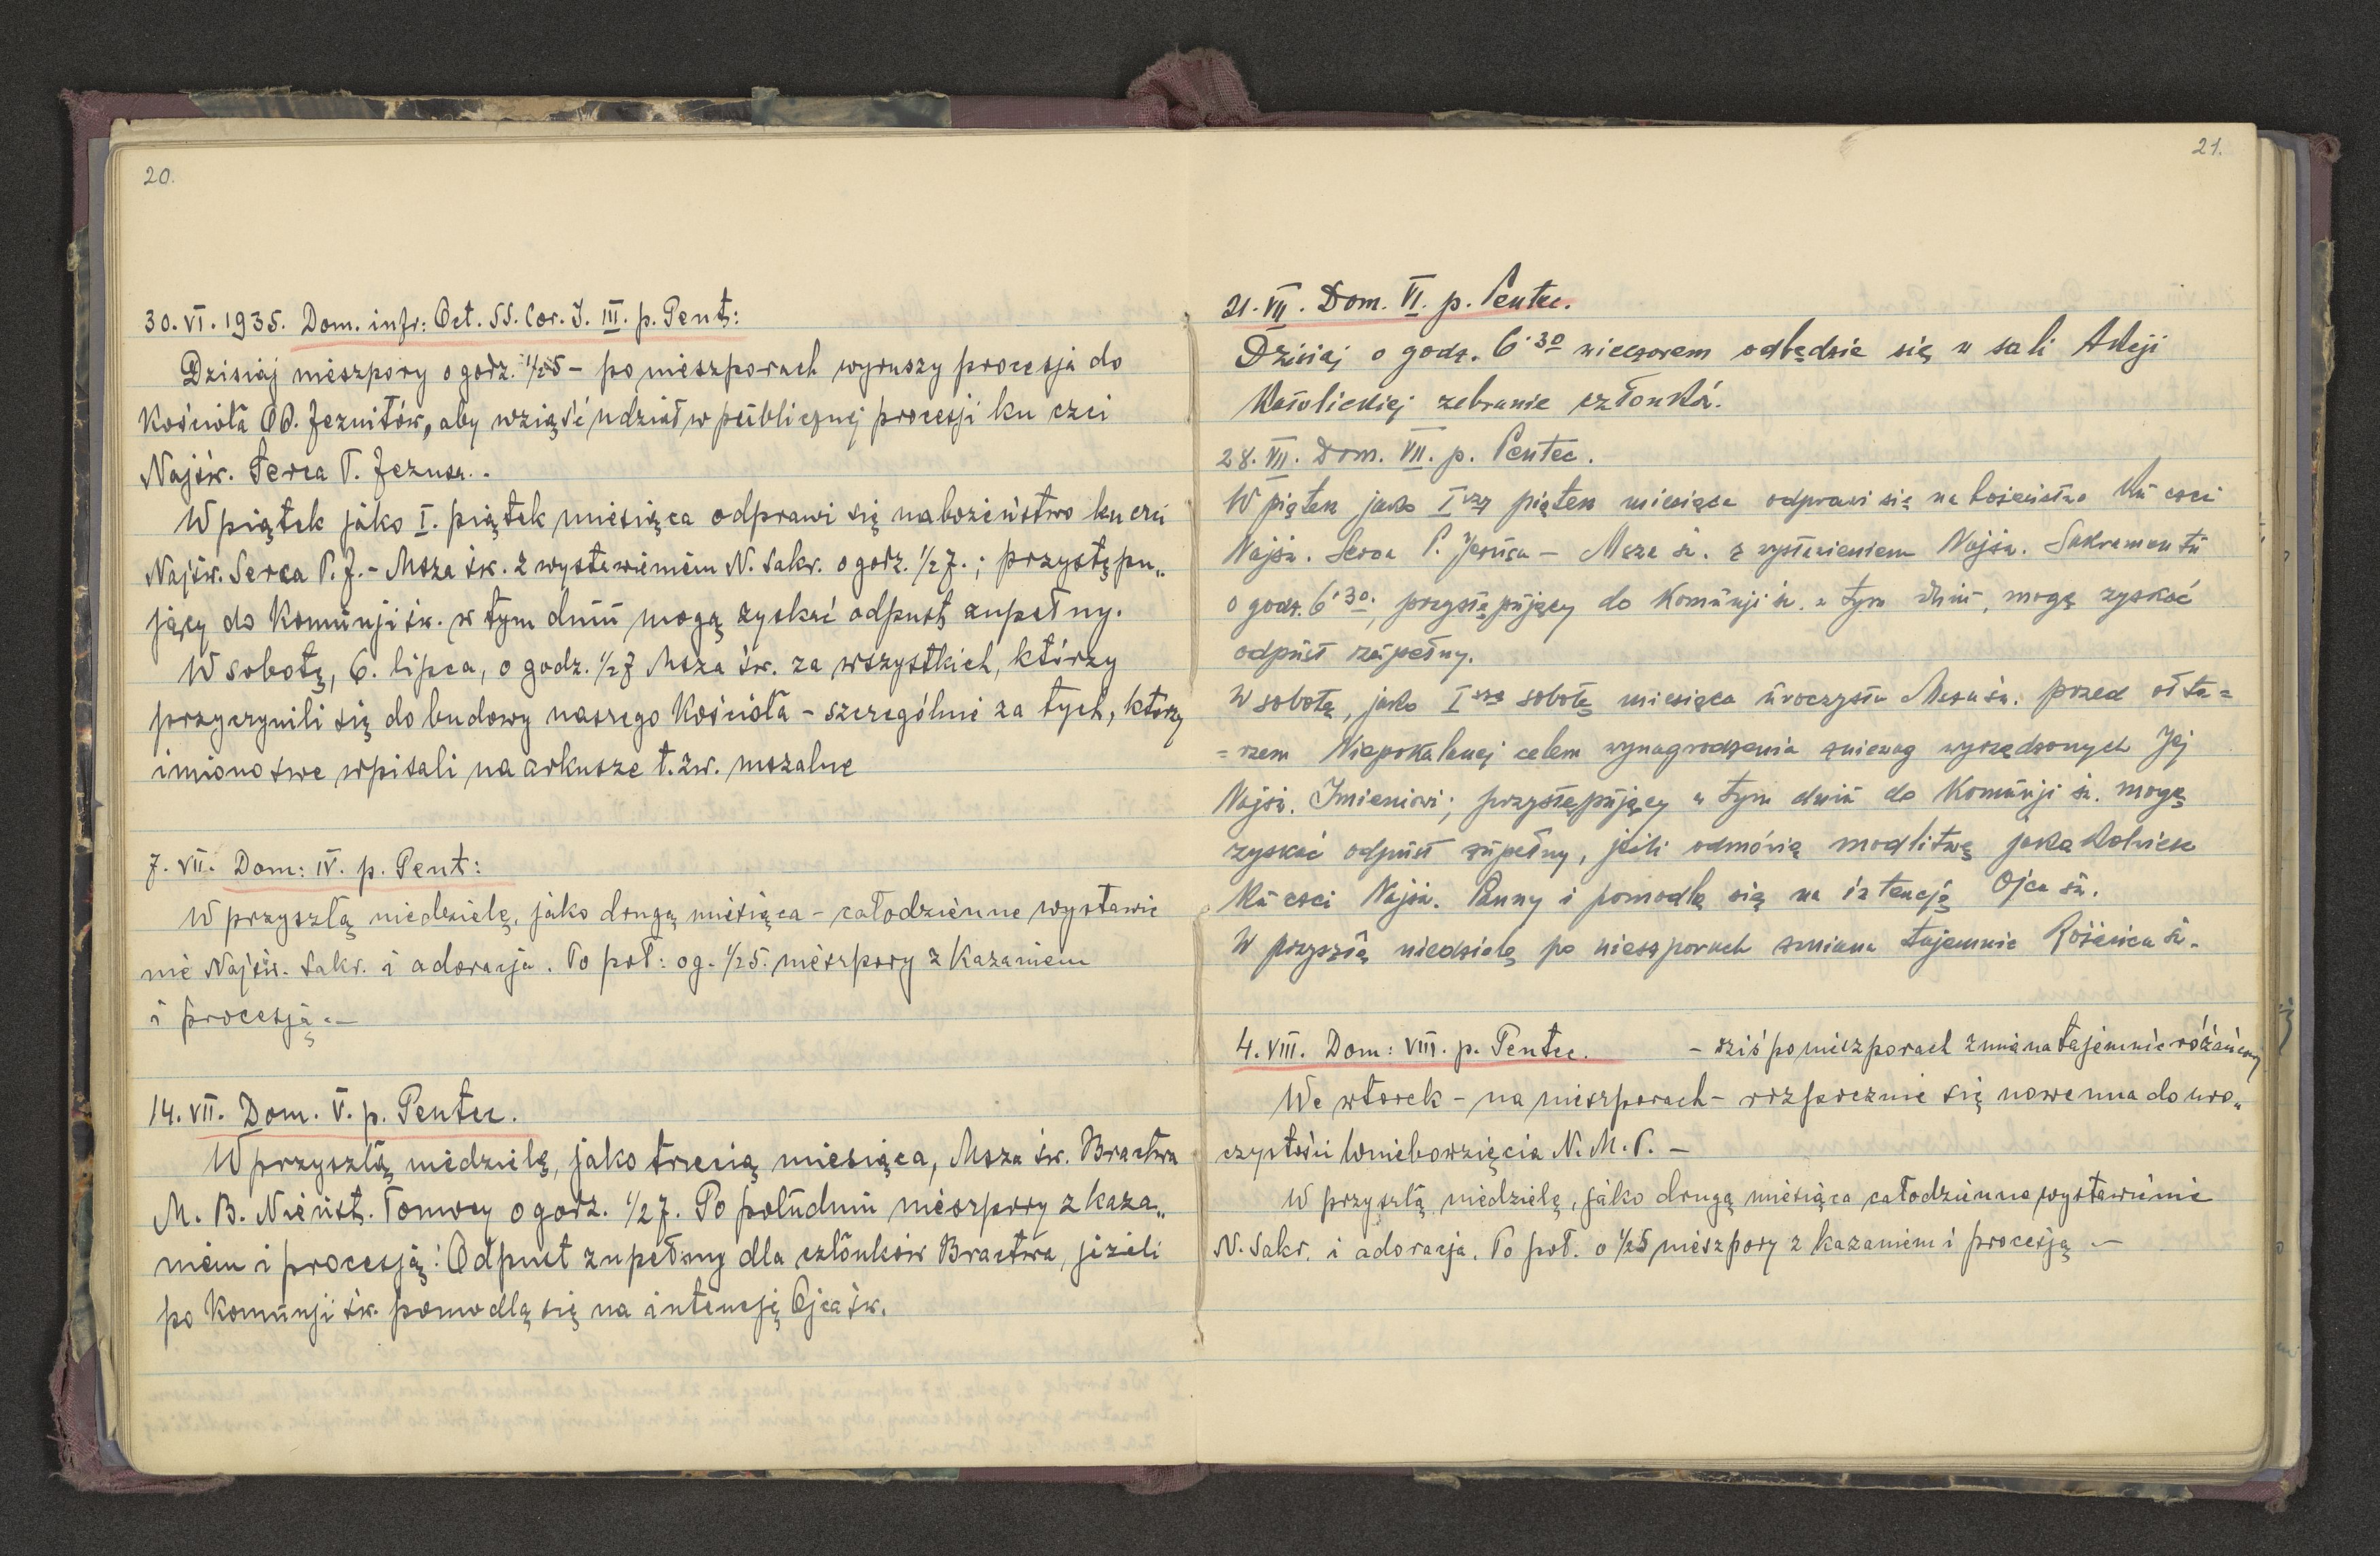 20.
30. VI. 1935. Dom. infr: Oct. SS. Cor. J. III. p. Pent:
Dzisiaj nieszpory o godz. 1/2 5 - po nieszporach wyruszy procesja do
Kościoła OO. Jezuitów, aby wziąść udział w publicznej procesji ku czci
Najśw. Serca P. Jezusa..
W piątek jako I. piątek miesiąca odprawi się nabożeństwo ku czci
Najśw. Serca P. J. - Msza św. z wystawieniem N. Sakr. o godz. 1/2 7. ; przystępu„
jący do Komunji św. w tym dniu mogą zyskać odpust zupełny.
W sobotę, 6. lipca, o godz. 1/2 7 Msza św. za wszystkich, którzy
przyczynili się do budowy naszego Kościoła - szczególnie za tych, którzy
imiona swe wpisali na arkusze t. zw. mszalne
7. VII. Dom: IV. p. Pent:
W przyszłą niedzielę, jako drugą miesiąca - całodzienne wystawie
nie Najśw. Sakr. i adoracja. Po poł: o g. 1/2 5. nieszpory z kazaniem
i procesją. -
14. VII. Dom. V. p. Pentec.
W przyszłą niedzielę, jako trzecią miesiąca, Msza św. Bractwa
M. B. Nieust. Pomocy o godz. 1/2 7. Po południu nieszpory z kaza„
niem i procesją. Odpust zupełny dla członków Bractwa, jeżeli
po Komunji św. pomodlą się na intencję Ojca św.
21.
21. VII. Dom. VI. p. Pentec.
Dzisiaj o godz. 6.30 wieczorem odbędzie się w sali Akcji
Katolickiej zebranie członków.
28. VII. Dom. VII. p. Pentec.
W piątek jako Iszy piątek miesiąca odprawi się nabożeństwo ku czci
Najśw. Serca P. Jezusa - Msza św. z wystawieniem Najśw. Sakramentu
o godz. 6.30; przystępujący do Komunji św. w tym dniu, mogą zyskać
odpust zupełny.
W sobotę, jako Iszą sobotę miesiąca uroczysta Msza św. przed ołta=
=rzem Niepokalanej celem wynagrodzenia zniewag wyrządzonych Jej
Najśw. Imieniowi; przystępujący w tym dniu do Komunji św. mogą
zyskać odpust zupełny, jeśli odmówią modlitwę jakąkolwiek
ku czci Najśw. Panny i pomodlą się na intencję Ojca św.
W przyszłą niedzielę po nieszporach zmiana tajemnic Różańca św.
4. VIII. Dom: VIII. p. Pentec. - dziś po nieszporach zmiana tajemnic różańcowych
We wtorek - na nieszporach - rozpocznie się nowenna do uro„
czystości Wniebowzięcia N. M. P. -
W przyszłą niedzielę, jako drugą miesiąca całodzienne wystawienie
N. Sakr. i adoracja. Po poł. o 1/2 5 nieszpory z kazaniem i procesją -